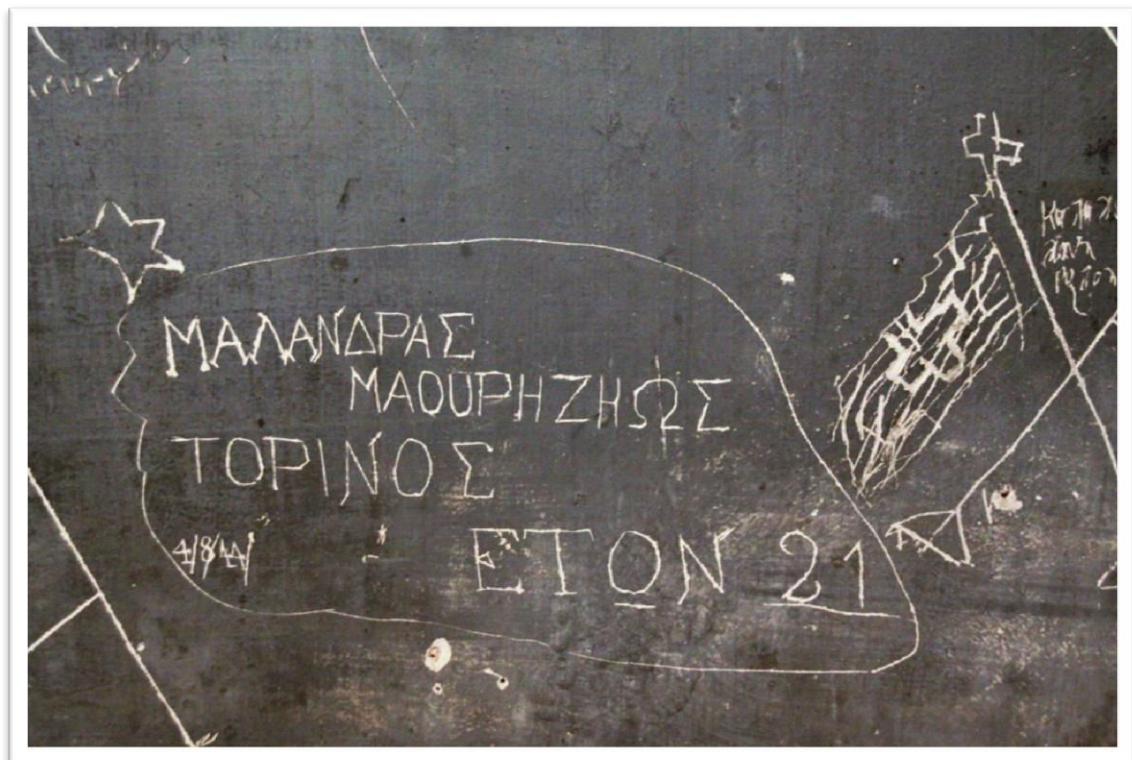 ΜΑΛΑΝΔΡΑΣ
ΜΑΟΥΡΗΖΗΩΣ
ΤΟΡΙΝΟΣ
4/8/44
ΕΤΟΝ 21